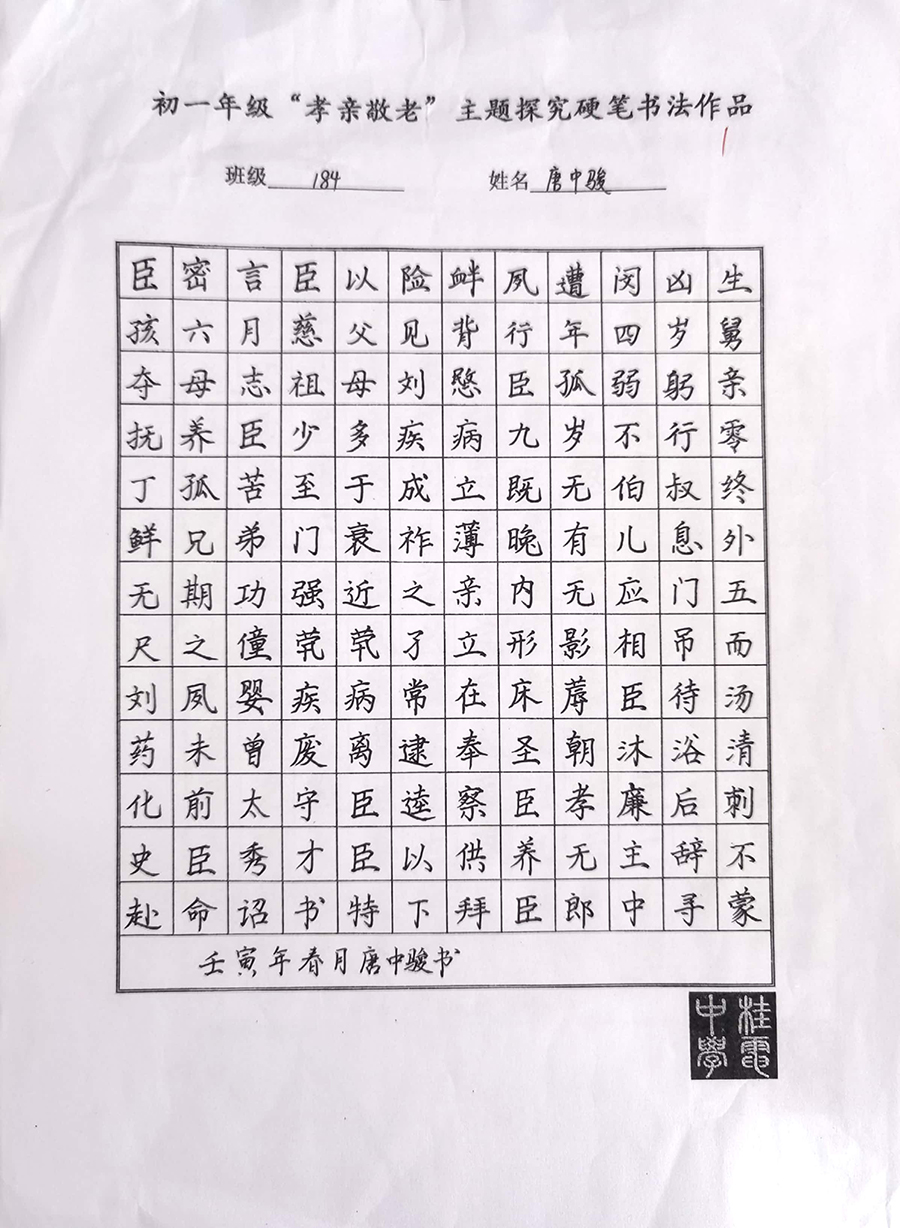 初一年级“孝亲敬老”主题探究硬笔书法作品
班级 184 姓名 唐中骏
臣密言臣以险衅夙遭闵凶生
孩六月慈父见背行年四岁舅
夺母志祖母刘愍臣孤弱躬亲
抚养臣少多疾病九岁不行零
丁孤苦至于成立既无伯叔终
鲜兄弟门衰祚薄晚有儿息外
无期功强近之亲内无应门五
尺之僮茕茕孑立形影相吊而
刘夙婴疾病常在床蓐臣待汤
药未曾废离逮奉圣朝沐浴清
化前太守臣逵察臣孝廉后刺
史臣秀才臣以供养无主辞不
赴命诏书特下拜臣郎中寻蒙
壬寅年春月唐中骏书
桂电
中学